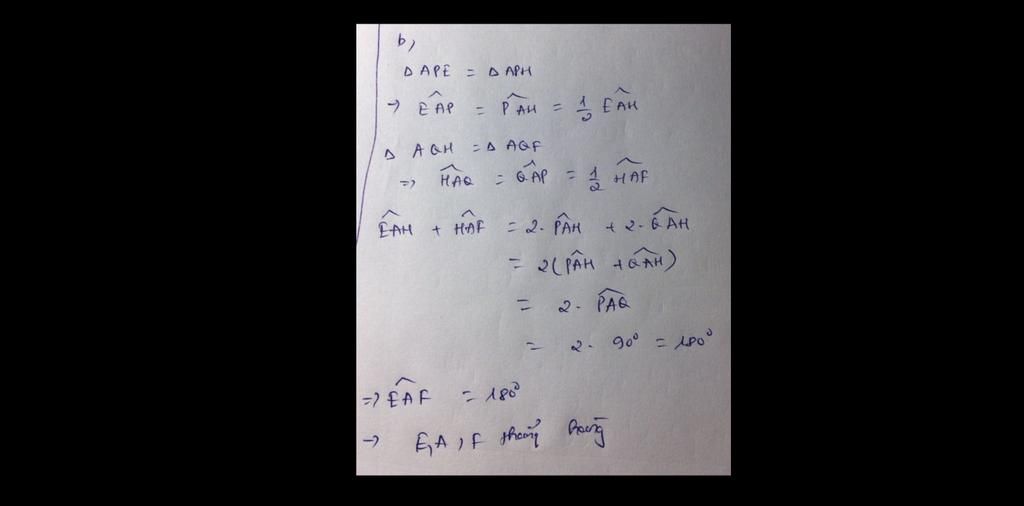 b,
Δ APE = Δ APH
→ EÂP = PÂH = 1/2 EÂH
Δ AQH = Δ AQF
=> HÂQ = QÂP = 1/2 HÂF
EÂH + HÂF = 2. PÂH + 2. QÂH
= 2(PÂH + QÂH)
= 2. PÂQ
= 2. 90° = 180°
=> EÂF = 180°
→ E, A, F thẳng hàng